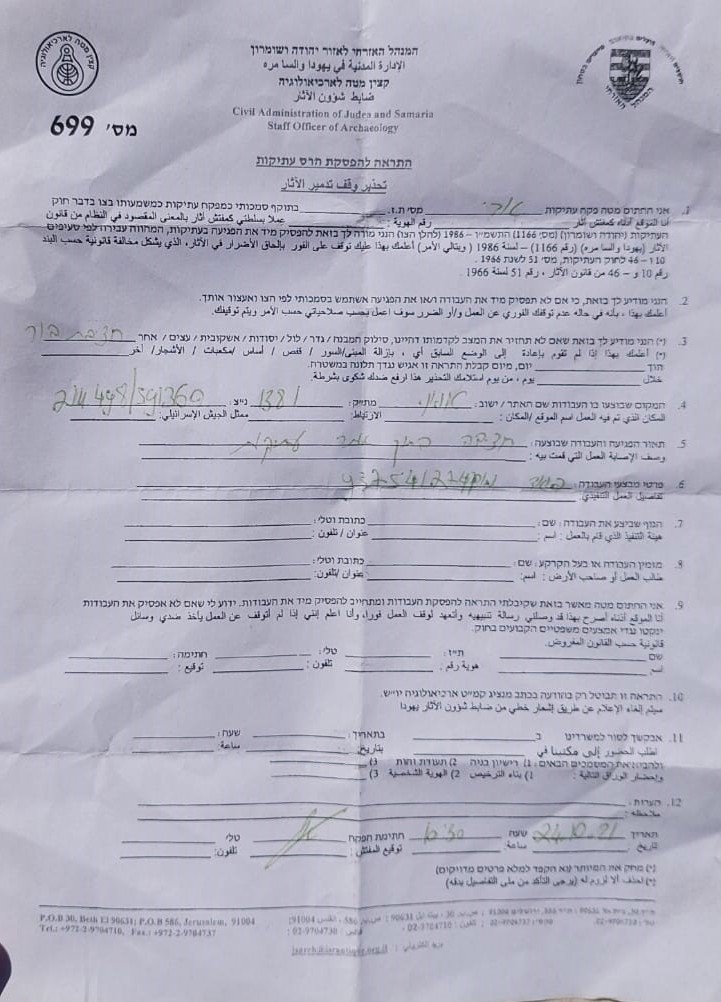 המנהל האזרחי לאזור יהודה ושומרון
الإدارة المدنية في يهودا والسامره
קצין מטה לארכיאולוגיה
ضابط شؤون الآثار
Civil Administration of Judea and Samaria
Staff Officer of Archaeology
קצין מטה לארכיאולוגיה
המנהל האזרחי
מס' 699
התראה להפסקת הרס עתיקות
تحذير وقف تدمير الآثار
1. אני החתום מטה פקח עתיקות אורי מס' ת.ז. בתוקף סמכותי כמפקח עתיקות כמשמעותו בצו בדבר חוק
أنا الموقع أدناه كمفتش آثار رقم الهوية: عملا بسلطتي كمفتش آثار بالمعنى المقصود في النظام من قانون
העתיקות (יהודה ושומרון) (מס' 1166) התשמ"ו – 1986 (להלן הצו) הנני מורה לך בזאת להפסיק מיד את הפגיעה בעתיקות, המהווה עבירה לפי סעיפים
الآثار (يهودا والسامره) (رقم 1166) – لسنة 1986 (وبالتالي الأمر) أعلمك بهذا عليك توقف على الفور بإلحاق الأضرار في الآثار، الذي يشكل مخالفة قانونية حسب البند
10 ו – 46 לחוק העתיקות, מס' 51 לשנת 1966.
رقم 10 و – 46 من قانون الآثار، رقم 51 لسنة 1966.
2. הנני מודיע לך בזאת, כי אם לא תפסיק מיד את העבודה ו/או את הפגיעה אשתמש בסמכותי לפי הצו ואעצור אותך.
أعلمك بهذا، بأنه في حاله عدم توقفك الفوري عن العمل و/أو الضرر سوف اعمل بحسب صلاحياتي حسب الأمر ويتم توقيفك.
3. (*) הנני מודיע לך בזאת שאם לא תחזיר את המצב לקדמותו דהיינו, סילוק המבנה / גדר / לול / יסודות / אשקובית / עצים / אחר חציבת בור
(*) أعلمك بهذا إذا لم تقوم بإعادة إلى الوضع السابق أي، بإزالة المبنى/السور / قفص / أساس /مكعبات / الأشجار/ أخر
תוך יום, מיום קבלת התראה זו אגיש נגדך תלונה במשטרה.
خلال يوم، من يوم استلامك التحذير هذا ارفع ضدك شكوى بالشرطة.
4. המקום שבוצעו בו העבודות שם האתר / ישוב: מתייק: 1381 נ"צ: 214498/591360
المكان الذي تم فيه العمل اسم الموقع /المكان: الارتباط: ممثل الجيش الإسرائيلي:
5. תאור הפגיעה והעבודה שבוצעה: חציבה בתוך אתר עתיקות
وصف الإصابة العمل التي قمت بيه:
6. פרטי מבצעי העבודה:
تفاصيل العمل التنفيذي:
7. הגוף שביצע את העבודה: שם: כתובת וטלי:
هيئة التنفيذ الذي قام بالعمل: اسم: عنوان / تلفون:
8. מזמין העבודה או בעל הקרקע: שם: כתובת וטלי:
طالب العمل أو صاحب الأرض: اسم: عنوان /تلفون:
9. אני החתום מטה מאשר בזאת שקיבלתי התראה להפסקת העבודות ומתחייב להפסיק מיד את העבודות. ידוע לי שאם לא אפסיק את העבודות
أنا الموقع أدناه أصرح بهذا قد وصلني رسالة تنبيهيه وأتعهد لوقف العمل فورا، وأنا اعلم إنني إذا لم أتوقف عن العمل يأخذ ضدي وسائل
ינקטו נגדי אמצעים משפטיים הקבועים בחוק.
قانونية حسب القانون المفروض.
שם ת"ז: טלי: חתימה:
اسم هوية رقم: تلفون: توقيع:
10. התראה זו תבוטל רק בהודעה בכתב מנציג קמ"ט ארכיאולוגיה יו"ש.
سيتم إلغاء الإعلام عن طريق إشعار خطي من ضابط شؤون الآثار يهودا
11. אבקשך לסור למשרדינו ב בתאריך: שעה:
اطلب الحضور إلى مكتبنا في بتاريخ: ساعة:
ולהביא את המסמכים הבאים: 1) רישיון בניה 2) תעודת זהות 3)
وإحضار الوراق التالية: 1) بناء الترخيص 2) الهوية الشخصية 3)
12. הערות:
ملاحظه:
תאריך 24.10.21 שעה חתימת הפקח טלי
تاريخ: ساعة: توقيع المفتش: تلفون:
(*) מחק את המיותר (נא הקפד למלא פרטים מדויקים)
(*) احذف ألا لزوم له (يرجى التأكد من ملى التفاصيل بدقه)
P.O.B 30, Beth El 90631; P.O.B 586, Jerusalem, 91004
Tel.: +972-2-9704710, Fax: +972-2-9704737